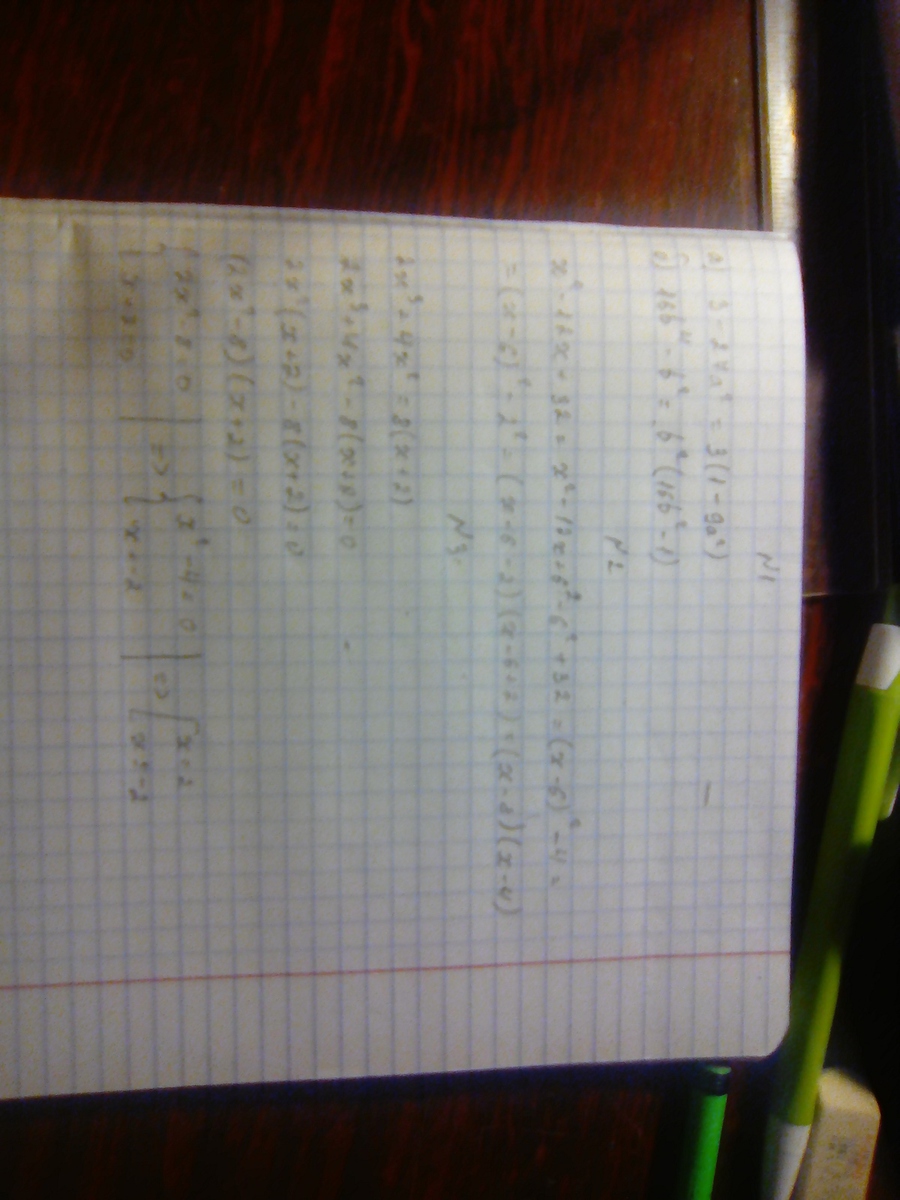 N1
а) 3-27a² = 3(1-9a²)
б) 16b⁴ - b² = b²(16b²-1)
N2
x² - 12x + 32 = x² - 12x + 6² - 6² + 32 = (x-6)² - 4 =
= (x-6)² - 2² = (x-6-2)(x-6+2) = (x-8)(x-4)
N3
2x³ + 4x² = 8(x+2)
2x³ + 4x² - 8(x+2) = 0
2x²(x+2) - 8(x+2) = 0
(2x² - 8)(x+2) = 0
2x² - 8 = 0 <=> x² - 4 = 0 <=> x=2
x+2=0 x=-2